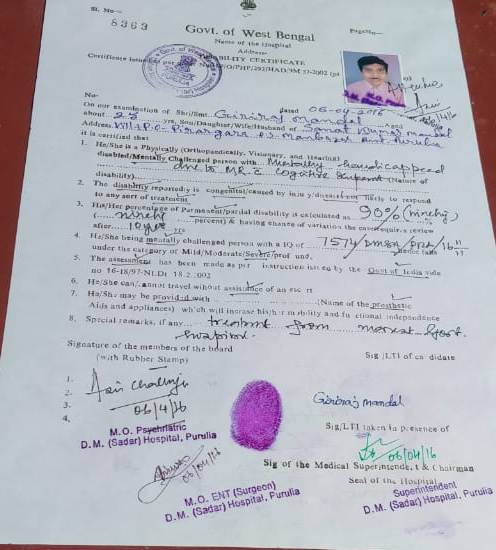 Sl. No—
8363
Govt. of West Bengal
Page No—
Name of the Hospital
Address-
DISABILITY CERTIFICATE
Certificate issued as per
No-
dated 06-04-2016
On our examination of Shri/Smt. Giriraj Mandal Aged
about 25 yrs, Son/Daughter/Wife/Husband of Sanat Kumar Mandal
Address Vill+P.O- P.S- Manbazar Dist. Purulia
it is certified that
1. He/She is a Physically (Orthopaedically, Visionary, and Hearing)
disabled/Mentally Challenged person with Mentally handicapped
due to MR c (Nature of
disability)
2. The disability reported is congenital/caused by injury/disease not likely to respond
to any sort of treatment.
3. His/Her percentage of Permanent/partial disability is calculated as 90% (ninety)
(......ninety......percent) & having change of variation the case require a review
after......10 yrs......yrs
4. He/She being mentally challenged person with a IQ of hence falls
under the category of Mild/Moderate/Severe/profound.
5. The assessment has been made as per instruction issued by the Govt of India vide
no 16-18/97-NI.Dt 18.2.2002
6. He/She can/cannot travel without assistance of an escort
7. He/She may be provided with (Name of the prosthetic
Aids and appliances) which will increase his/her mobility and functional independence
8. Special remarks, if any... treatment from nearest Govt.
Hospital.
Signature of the members of the board
(with Rubber Stamp)
Sig/LTI of candidate
1.
2.
3.
4.
06/4/16
M.O. Psychiatric
D.M. (Sadar) Hospital, Purulia
Giriraj mandal
Sig/LTI taken in presence of
06/04/16
Sig of the Medical Superintendent & Chairman
Seal of the Hospital
Superintendent
D.M. (Sadar) Hospital, Purulia
06/04/16
M.O. ENT (Surgeon)
D.M. (Sadar) Hospital, Purulia